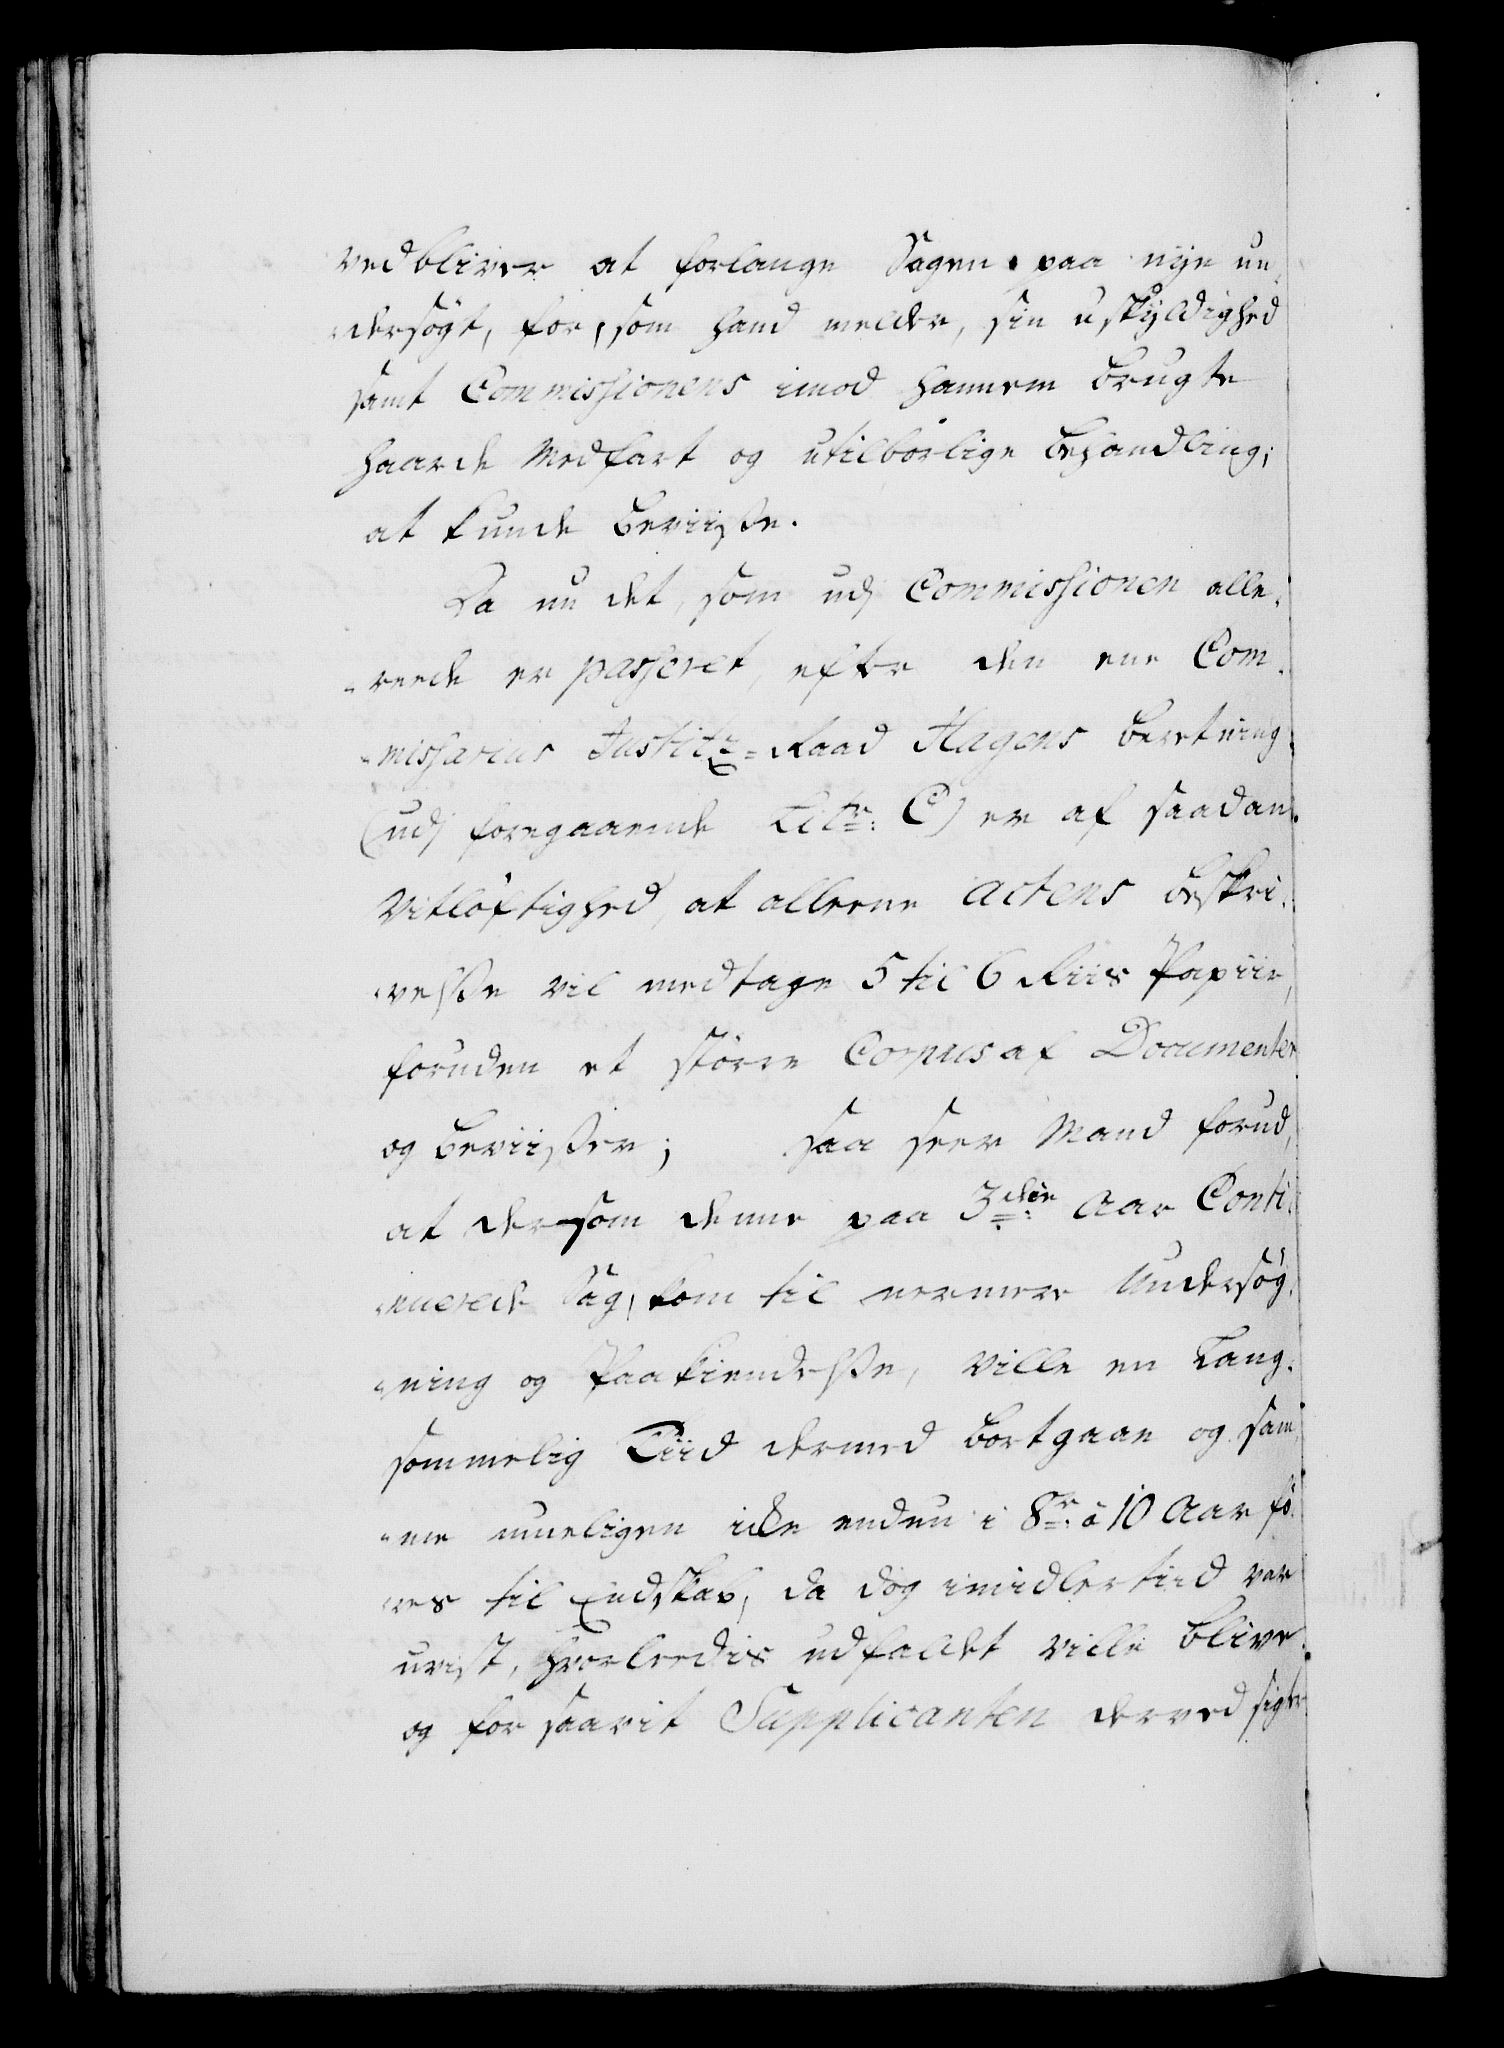 vedbliver at forlange Sagen paa nye un-
-dersögt, for, som hand melder, sin uskyldighed
samt Commissionens imod hannem brugte
haarde Medfart og utilbörlige behandling,
at kunde beviisse.
Da nu det, som udj Commissionen alle-
-reede er passeret, efter den ene Com-
-missarius Justitz-Raad Hagens beretning
(udj foregaaende Litr: C) er af saadan
Vitlöftighed, at alleene actens beskri-
-velsse vil medtage 5 til 6 Riis Papiir,
foruden et större Corpus af Documenter
og beviisser; saa seer Mand forud,
at dersom denne paa 3die Aar Conti-
-nuerede Sag, kom til nermere Undersög-
-ning og Paakiendelsse, ville en Lang-
sommelig Tiid dermed bortgaae og sam-
-me mueligen icke enden i 8te à 10 Aar fö-
-res til Endskab, da dog imidlertiid var
uvist, hvorleedis udfaldet ville blive
og for saavit Supplicanten derved sigter